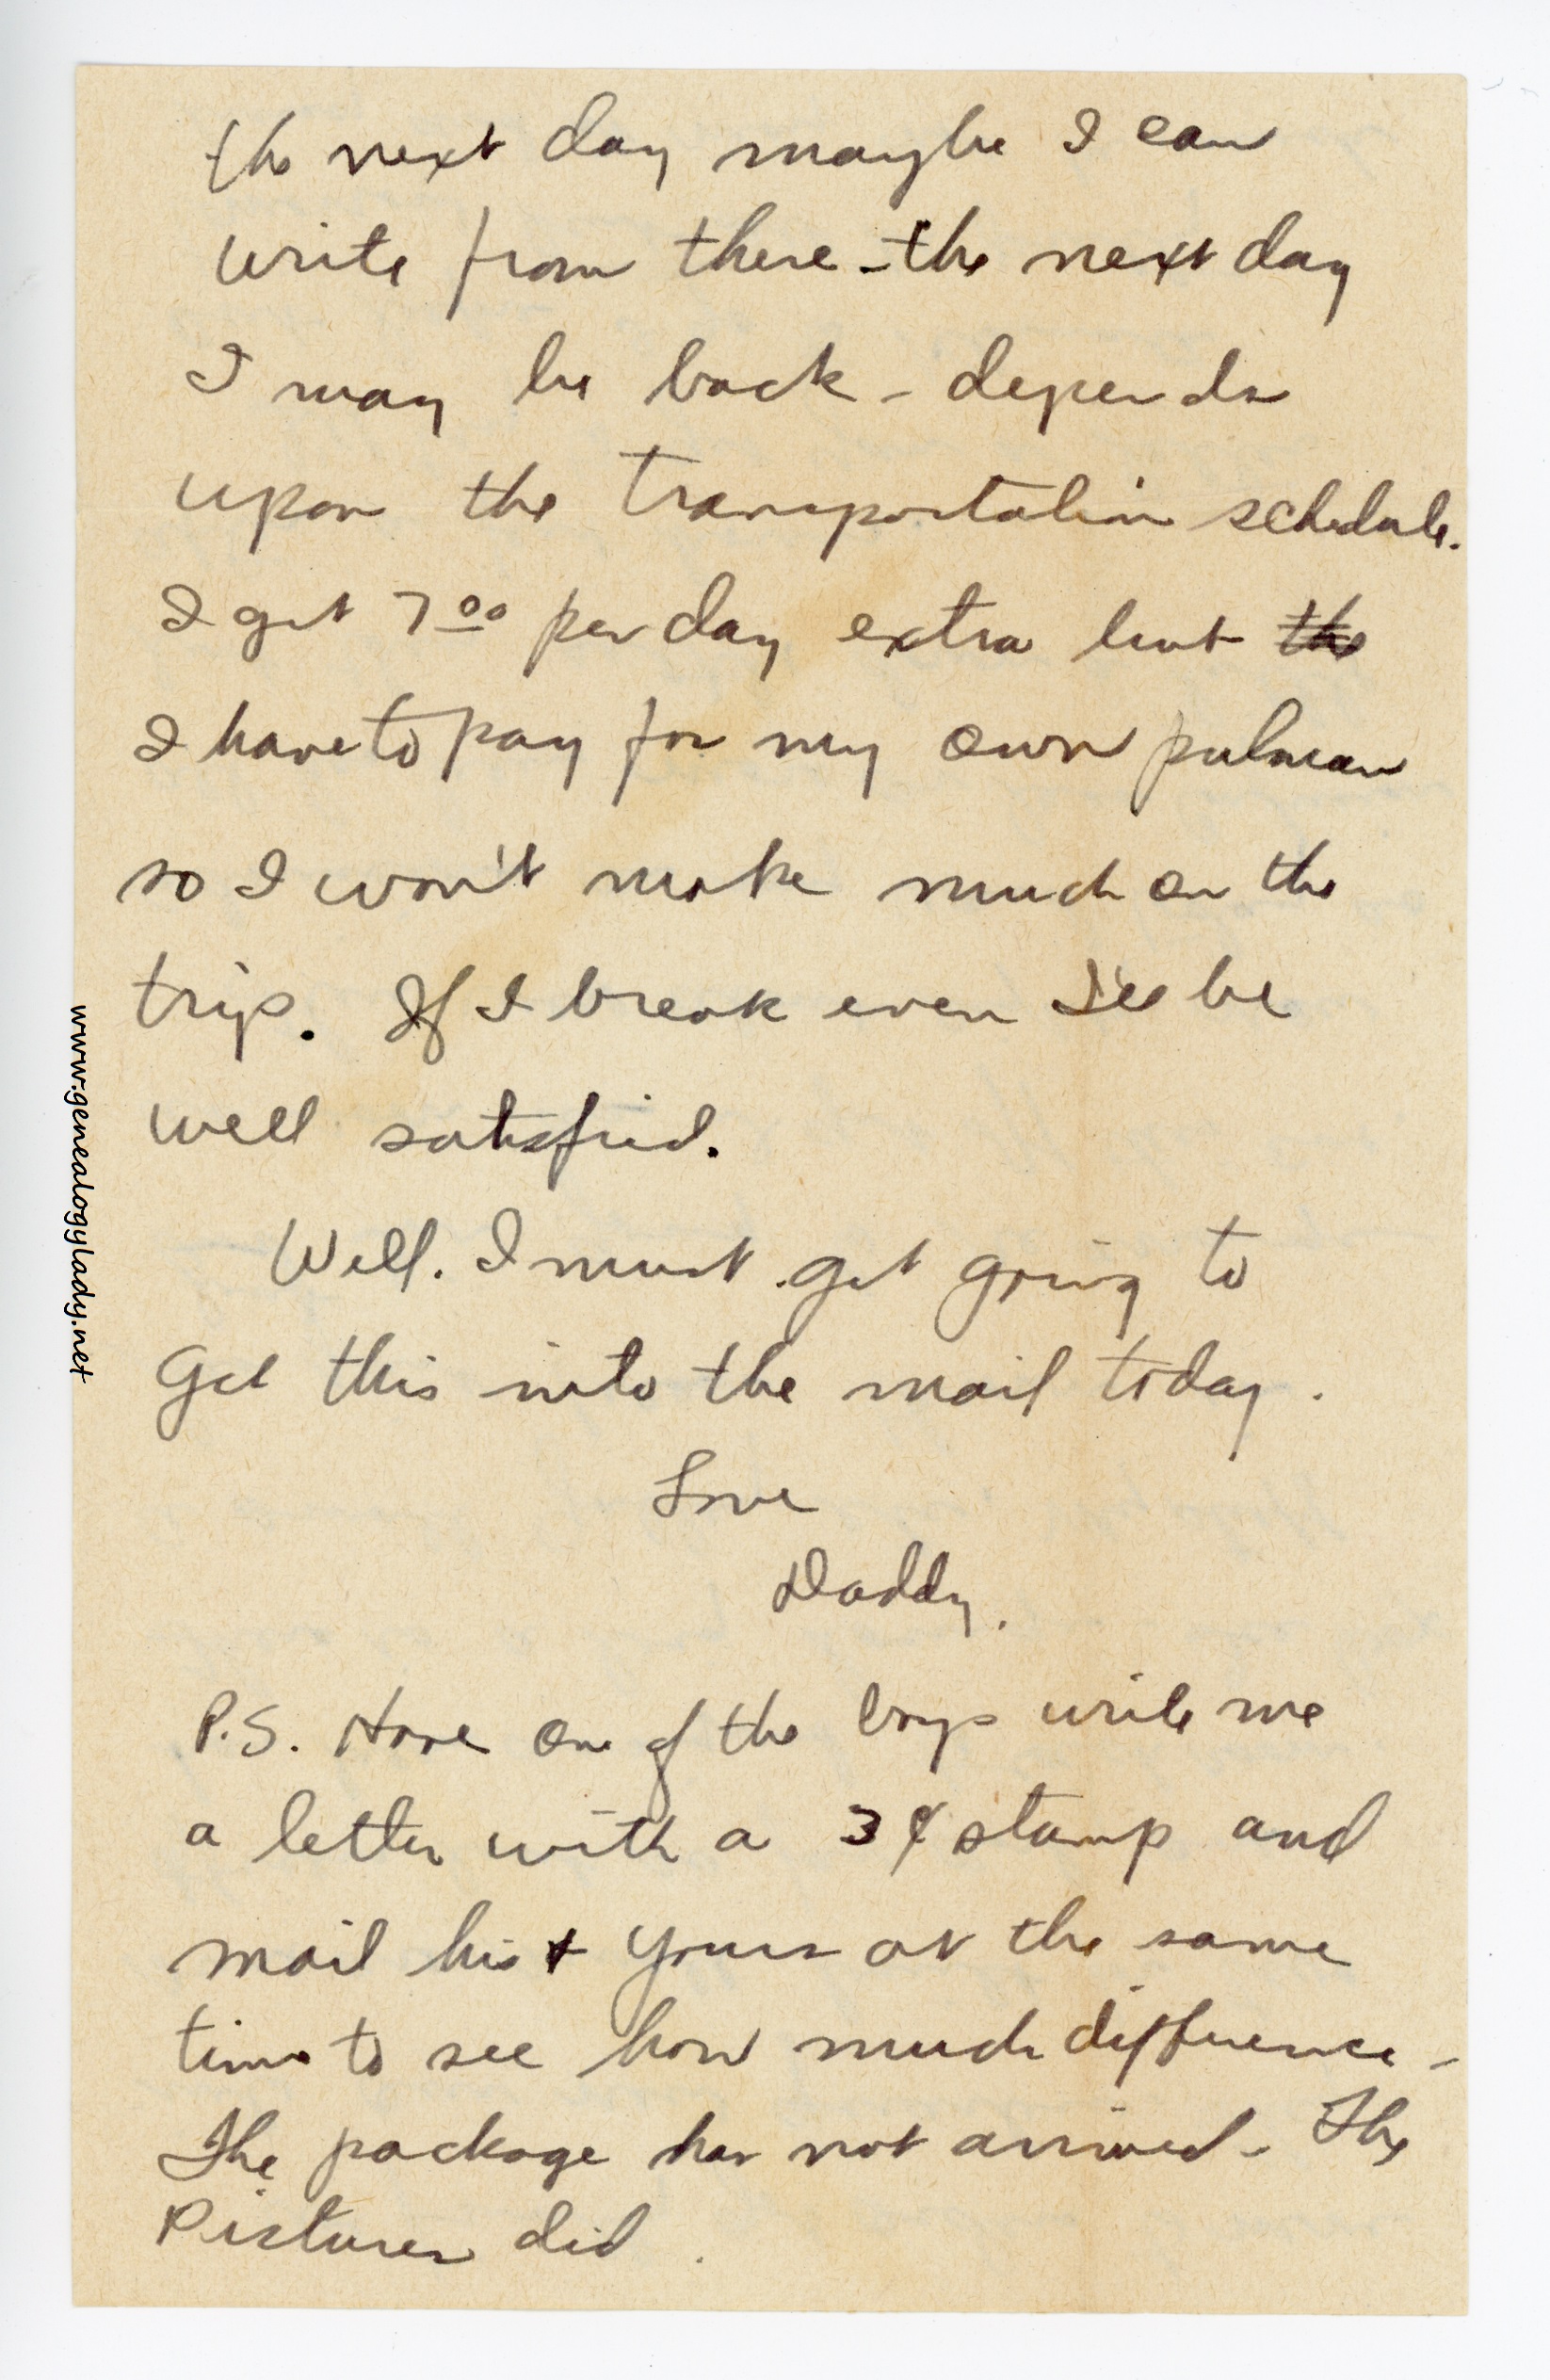 the next day maybe I can
write from there - the next day
I may be back - depends
upon the transportation schedule.
I get 7 00 per day extra but the
I have to pay for my own pulman
so I won't make much on the
trip. If I break even I'll be
well satisfied.
Well. I must get going to
get this into the mail today.
Love
Daddy.
P.S. Have one of the boys write me
a letter with a 3¢ stamp and
mail his + yours at the same
time to see how much difference -
The package has not arrived - The
Pictures did.
www.genealogylady.net